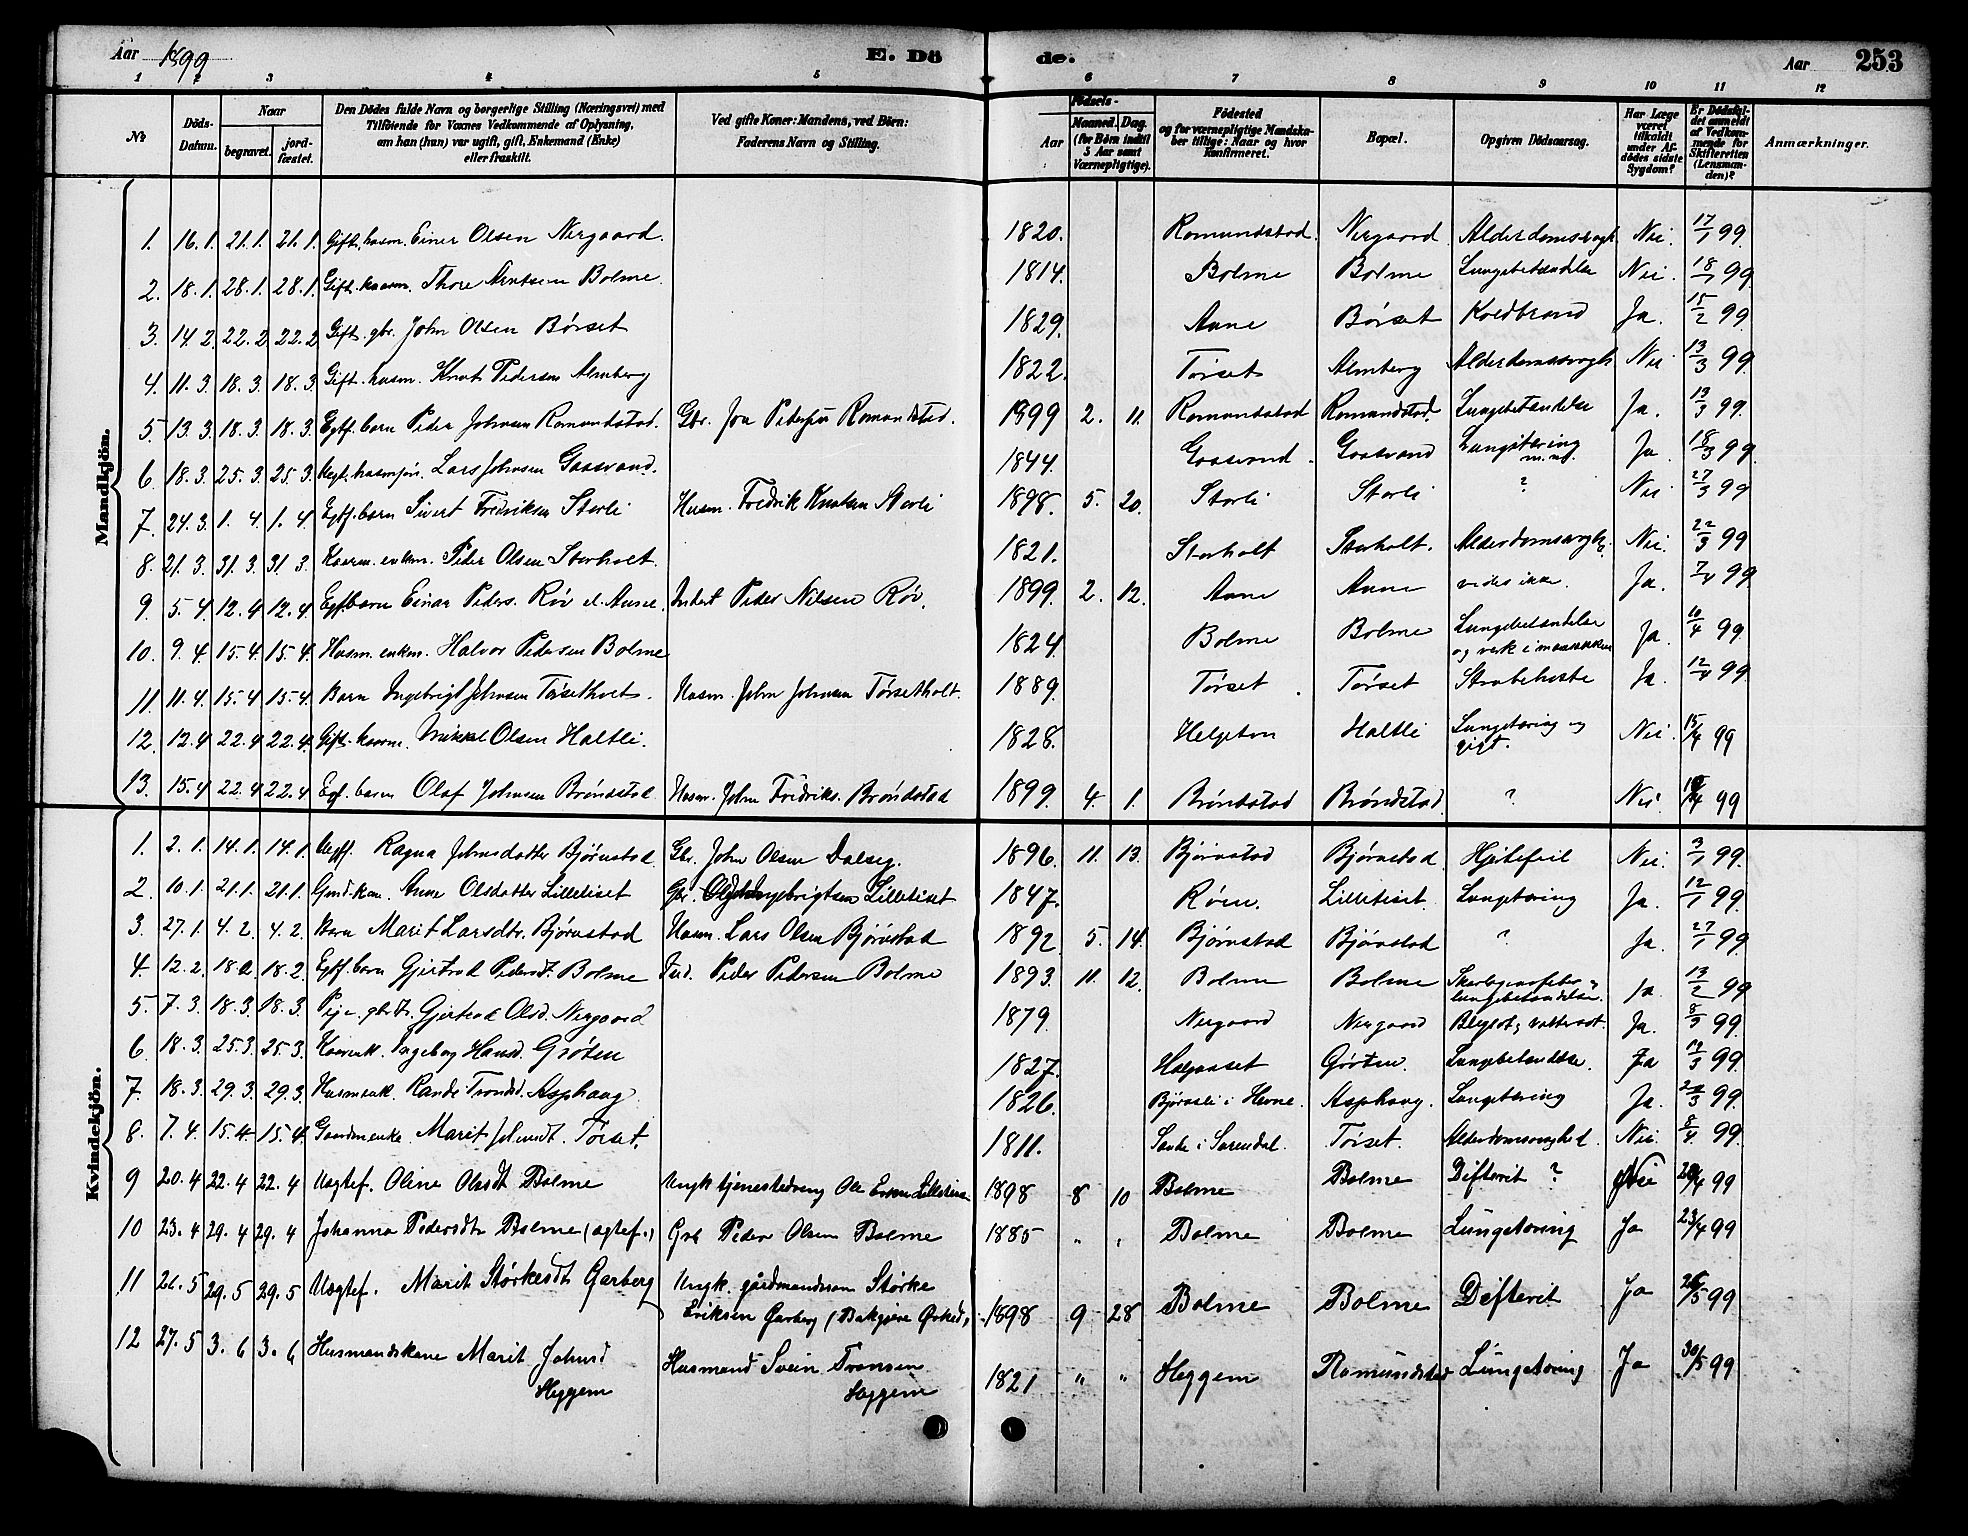 Aar 1899 E. Dö de. Aar 253
1 2 3 4 5 6 7 8 9 10 11 12
№ Döds-Datum. Naar begravet. jord-fæstet. Den Dödes fulde Navn og borgerlige Stilling (Næringsvei) med Tilföiende for Voxnes Vedkommende af Oplysning, om han (hun) var ugift, gift, Enkemand (Enke) eller fraskilt. Ved gifte Koner: Mandens, ved Börn: Faderens Navn og Stilling. Födsels- Aar Maaned. Dag. (for Börn indtil 5 Aar samt Værnepligtige). Födested og for værnepligtige Mandskaber tillige: Naar og hvor Konfirmeret. Bopæl. Opgiven Dödsaarsag. Har Læge været tilkaldt under Afdödes sidste Sygdom? Er Dödsfaldet anmeldt af Vedkommende for Skifteretten (Lensmanden)? Anmærkninger.
Mandkjön.
1. 16.1. 21.1. 21.1. Gift. husm. Einer Olsen Nergaard. 1820. Romundstad. Nergaard Alderdomssvagh. Nei. 17/1 99.
2. 18.1. 28.1. 28.1. Gift. kaarm. Thore Arntsen Bolme. 1814. Bolme Bolme Lungebetændelse Nei. 18/1 99.
3. 14.2. 22.2 22.2 Gift. gbr. John Olsen Börset 1829. Aune Börset Koldbrand Ja. 15/2 99.
4. 11.3. 18.3. 18.3. Gift. husm. Knut Pedersen Almberg 1822. Törset Almberg Alderdomssvagh. Nei 13/3 99.
5. 13.3. 18.3. 18.3. Egtf. barn Peder Johnsen Romundstad. Gbr. Jon Pedersen Romundstad. 1899 2. 11. Romundstad Romundstad. Lungebetændelse Ja. 13/3 99.
6. 18.3. 25.3. 25.3. Lars Johnsen Gaasvand. 1844. Gaasvand. Gaasvand Lungetæring m.m. Ja. 18/3 99.
7. 24.3. 1.4. 1.4. Egtf. barn Sivert Fredriksen Storli Husm. Fredrik Knutsen Storli 1898. 5. 20. Storli Storli ? Nei 27/3 99
8. 21.3. 31.3. 31.3. Kaarm. enkm. Peder Olsen Storholt. 1821. Storholt Storholt. Alderdomssvagh. Nei. 22/3 99
9. 5.4. 12.4 12.4 Egtf barn Einar Peders. Röv el. Aune. Inderst Peder Nilsen Röv. 1899. 2. 12. Aune Aune vides ikke. Ja. 7/4 99
10. 9.4. 15.4. 15.4. Husm. enkm. Halvor Pedersen Bolme 1824. Bolme Bolme Lungebetændelse og verk i Ja. 10/4 99.
11. 11.4. 15.4 15.4. Barn Ingebrigt Johnsen Törsetholt. Husm. John Johnsen Törsetholt. 1889. Törset. Törset Strubehoste Ja. 12/4 99.
12. 12.4 22.4 22.4. Gift. kaarm. Mikkel Olsen Holtli. 1828. Helgeton Holtli Lungetæring og gigt. Nei. 15/4 99
13. 15.4 22.4 22.4 Egf. barn Olaf Johnsen Bröndstad Husm. John Fredriks. Bröndstad 1899. 4. 1. Bröndstad Bröndstad. ? Nei. /4 99
Kvindekjön.
1. 2.1. 14.1. 14.1. Uegtf. Ragna Johnsdatter Björnstad Gbr. John Olsen Dalseg. 1896. 11. 13. Björnstad Björnstad. Hjertefeil Nei. 3/1 99.
2. 10.1. 21.1. 21.1. Gmd.kone. Anne Olsdatter Lilleliset Gbr. Ole Ingebrigtsen Lilleliset 1847. Röen. Lilleliset. Lungetæring Ja. 12/1 99.
3. 27.1. 4.2. 4.2. Barn Marit Larsdtr. Björnstad Husm. Lars Olsen Björnstad 1892. 5. 14. Björnstad Björnstad ? Ja. 27/1 99.
4. 12.2. 18.2 18.2. Egtf. barn Gjertrud Pedersdt. Bolme Ind. Peder Pedersen Bolme 1893. 11. 12. Bolme Bolme Skarlagensfeber og lungebetændelse. Ja. 13/2 99
5. 7.3. 18.3. 18.3. Pige. gbr.dt. Gjertrud Olsd. Nergaard 1879. Nergaard Nergaard Blegsot, vattersot. Ja. 8/3 99.
6. 18.3. 25.3. 25.3. Kaarenk. Ingeborg Hansd. Gröten 1827. Halgunset Gröten. Lungebetændelse. Ja 19/3 99.
7. 18.3. 29.3. 29.3. Husmenk. Randi Trondsd. Asphaug 1826. Björnsli i Hevne. Asphaug. Lungetæring Ja. 20/3 99.
8. 7.4. 15.4. 15.4. Gaardmenke. Marit Johnsdt. Törset. 1811. i Surendal. Törset. Alderdomssvaghed. Nei. 8/4 99.
9 20.4 22.4 22.4 Uægtef. Oline Olsdt Bolme Ungk tjenestedreng Ole Lilleliset 1898 8 10 Bolme Bolme Difterit ? Nei 20/4 99
10 23.4 29.4 29.4 Johanna Pedersdt Bolme (ægtef.) Grb Peder Olsen Bolme 1885 " " Bolme Bolme Lungetæring Ja 23/4 99
11 21.5 29.5 29.5 Uægtef. Marit Störkesdt Garberg Ungk. gårdmandssøn Störke
Eriksen Garberg (Bakgjere Orkedal) 1898 9 28 Bolme Bolme Difterit Ja 26/5 99
12 27.5 3.6 3.6 Husmandskone Marit Johnsd Husmand Svein Tronsen
Heggem Heggem 1821 " " Heggem Romundstad Lungetæring Ja 30/5 99